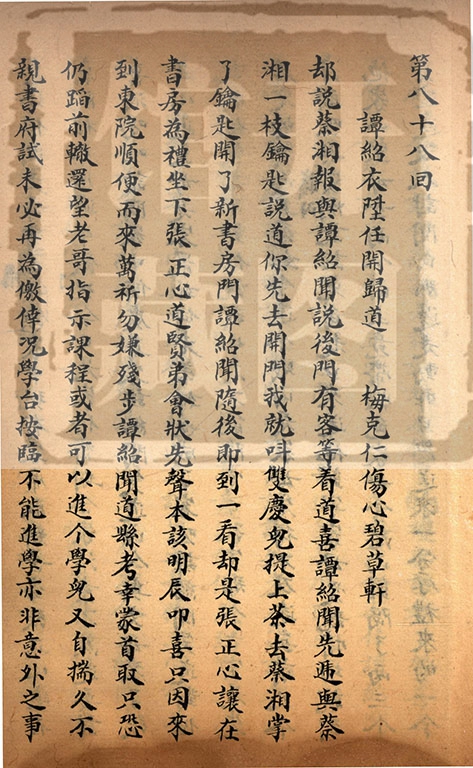 第八十八回
譚紹衣陞任開歸道　梅克仁傷心碧草軒
却說蔡湘報與譚紹聞說後門有客等看道喜譚紹聞先遞與蔡
湘一枝鑰匙說道你先去開門我就呌雙慶兒提上茶去蔡湘掌
了鑰匙開了新書房門譚紹聞隨後即到一看却是張正心讓在
書房為禮坐下張正心道賢弟會狀先聲本該明辰叩喜只因來
到東院順便而來萬祈勿嫌殘步譚紹聞道縣考幸蒙首取只恐
仍蹈前轍還望老哥指示課程或者可以進个學兒又自揣久不
親書府試未必再為儌倖况學台按臨不能進學亦非意外之事